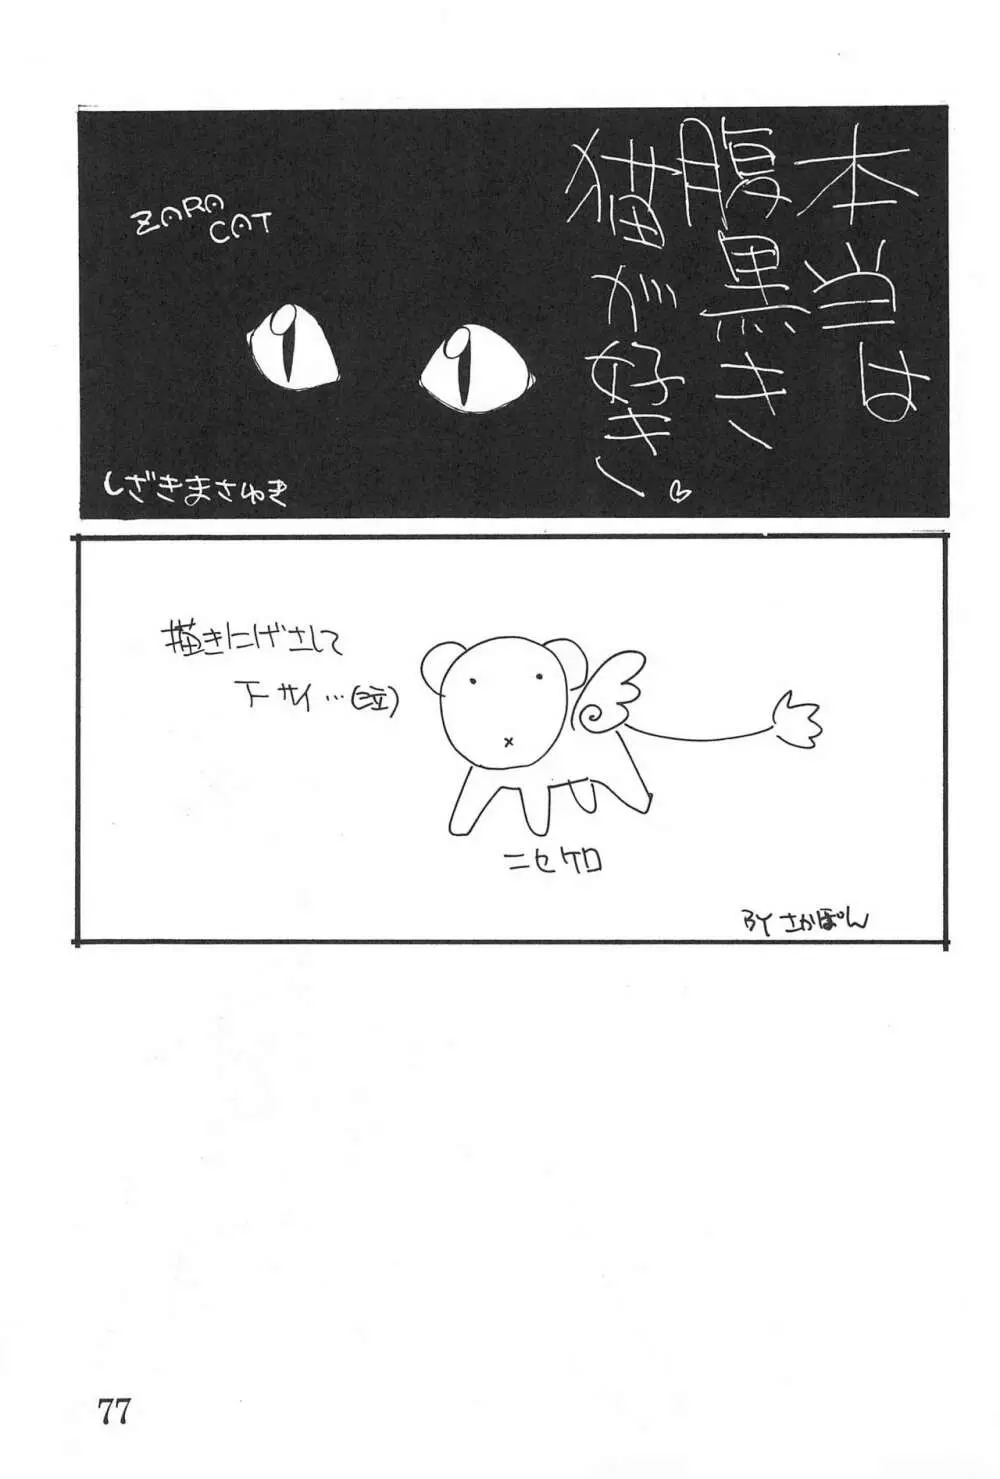 本当は
腹黒き
猫が好き。
ZARA
CAT
しざきまさゆき
描きにげさして
下サイ…(泣)
ニセケロ
BY さかぽん
77